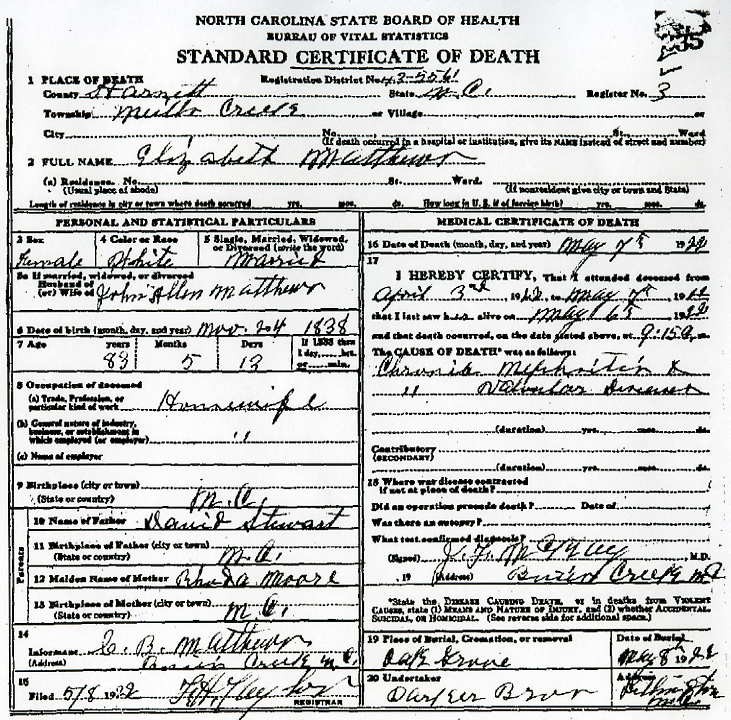 NORTH CAROLINA STATE BOARD OF HEALTH
BUREAU OF VITAL STATISTICS
STANDARD CERTIFICATE OF DEATH
1 PLACE OF DEATH Registration District No. 43-5561
County Harnett State N.C. Register No. 3
Township Creek or Village or
City No. St. Ward
(If death occurred in a hospital or institution, give its NAME instead of street and number)
2 FULL NAME Elizabeth Matthews
(a) Residence. No. St. Ward.
(Usual place of abode) (If nonresident give city or town and State)
Length of residence in city or town where death occurred yrs. mos. ds. How long in U. S. if of foreign birth? yrs. mos. ds.
PERSONAL AND STATISTICAL PARTICULARS
3 Sex 4 Color or Race 5 Single, Married, Widowed, or Divorced (write the word)
Female White Married
5a If married, widowed, or divorced
Husband of
(or) Wife of John Allen Matthews
6 Date of birth (month, day, and year) Nov. 24 1838
7 Age years Months Days If LESS than
1 day, hrs.
or min.
83 5 13
8 Occupation of deceased
(a) Trade, Profession, or
particular kind of work Housewife
(b) General nature of industry,
business, or establishment in
which employed (or employer) "
(c) Name of employer
9 Birthplace (city or town)
(State or country) N.C.
Parents
10 Name of Father David Stewart
11 Birthplace of Father (city or town)
(State or country) N.C.
12 Maiden Name of Mother Rhoda Moore
13 Birthplace of Mother (city or town)
(State or country) N.C.
14
Informant B. Matthews
(Address) Creek N.C.
15
Filed 5/8 1922
REGISTRAR
MEDICAL CERTIFICATE OF DEATH
16 Date of Death (month, day, and year) May 7th 1922
17
I HEREBY CERTIFY, That I attended deceased from
April 3rd 1922, to May 7th 1922
that I last saw her alive on May 6th 1922
and that death occurred, on the date stated above, at 9:15a. m.
The CAUSE OF DEATH* was as follows:
Chronic Nephritis &
" Valvular Disease
(duration) yrs. mos. ds.
Contributory
(SECONDARY)
(duration) yrs. mos. ds.
18 Where was disease contracted
if not at place of death?
Did an operation precede death? Date of
Was there an autopsy?
What test confirmed diagnosis?
(Signed) J. F. McKay, M.D.
, 19 (Address) Buies Creek N.C.
*State the DISEASE CAUSING DEATH, or in deaths from VIOLENT
CAUSES, state (1) MEANS AND NATURE OF INJURY, and (2) whether ACCIDENTAL,
SUICIDAL, OR HOMICIDAL. (See reverse side for additional space.)
19 Place of Burial, Cremation, or removal Date of Burial
Oak Grove May 8th 1922
20 Undertaker Address
Lillington
N.C.